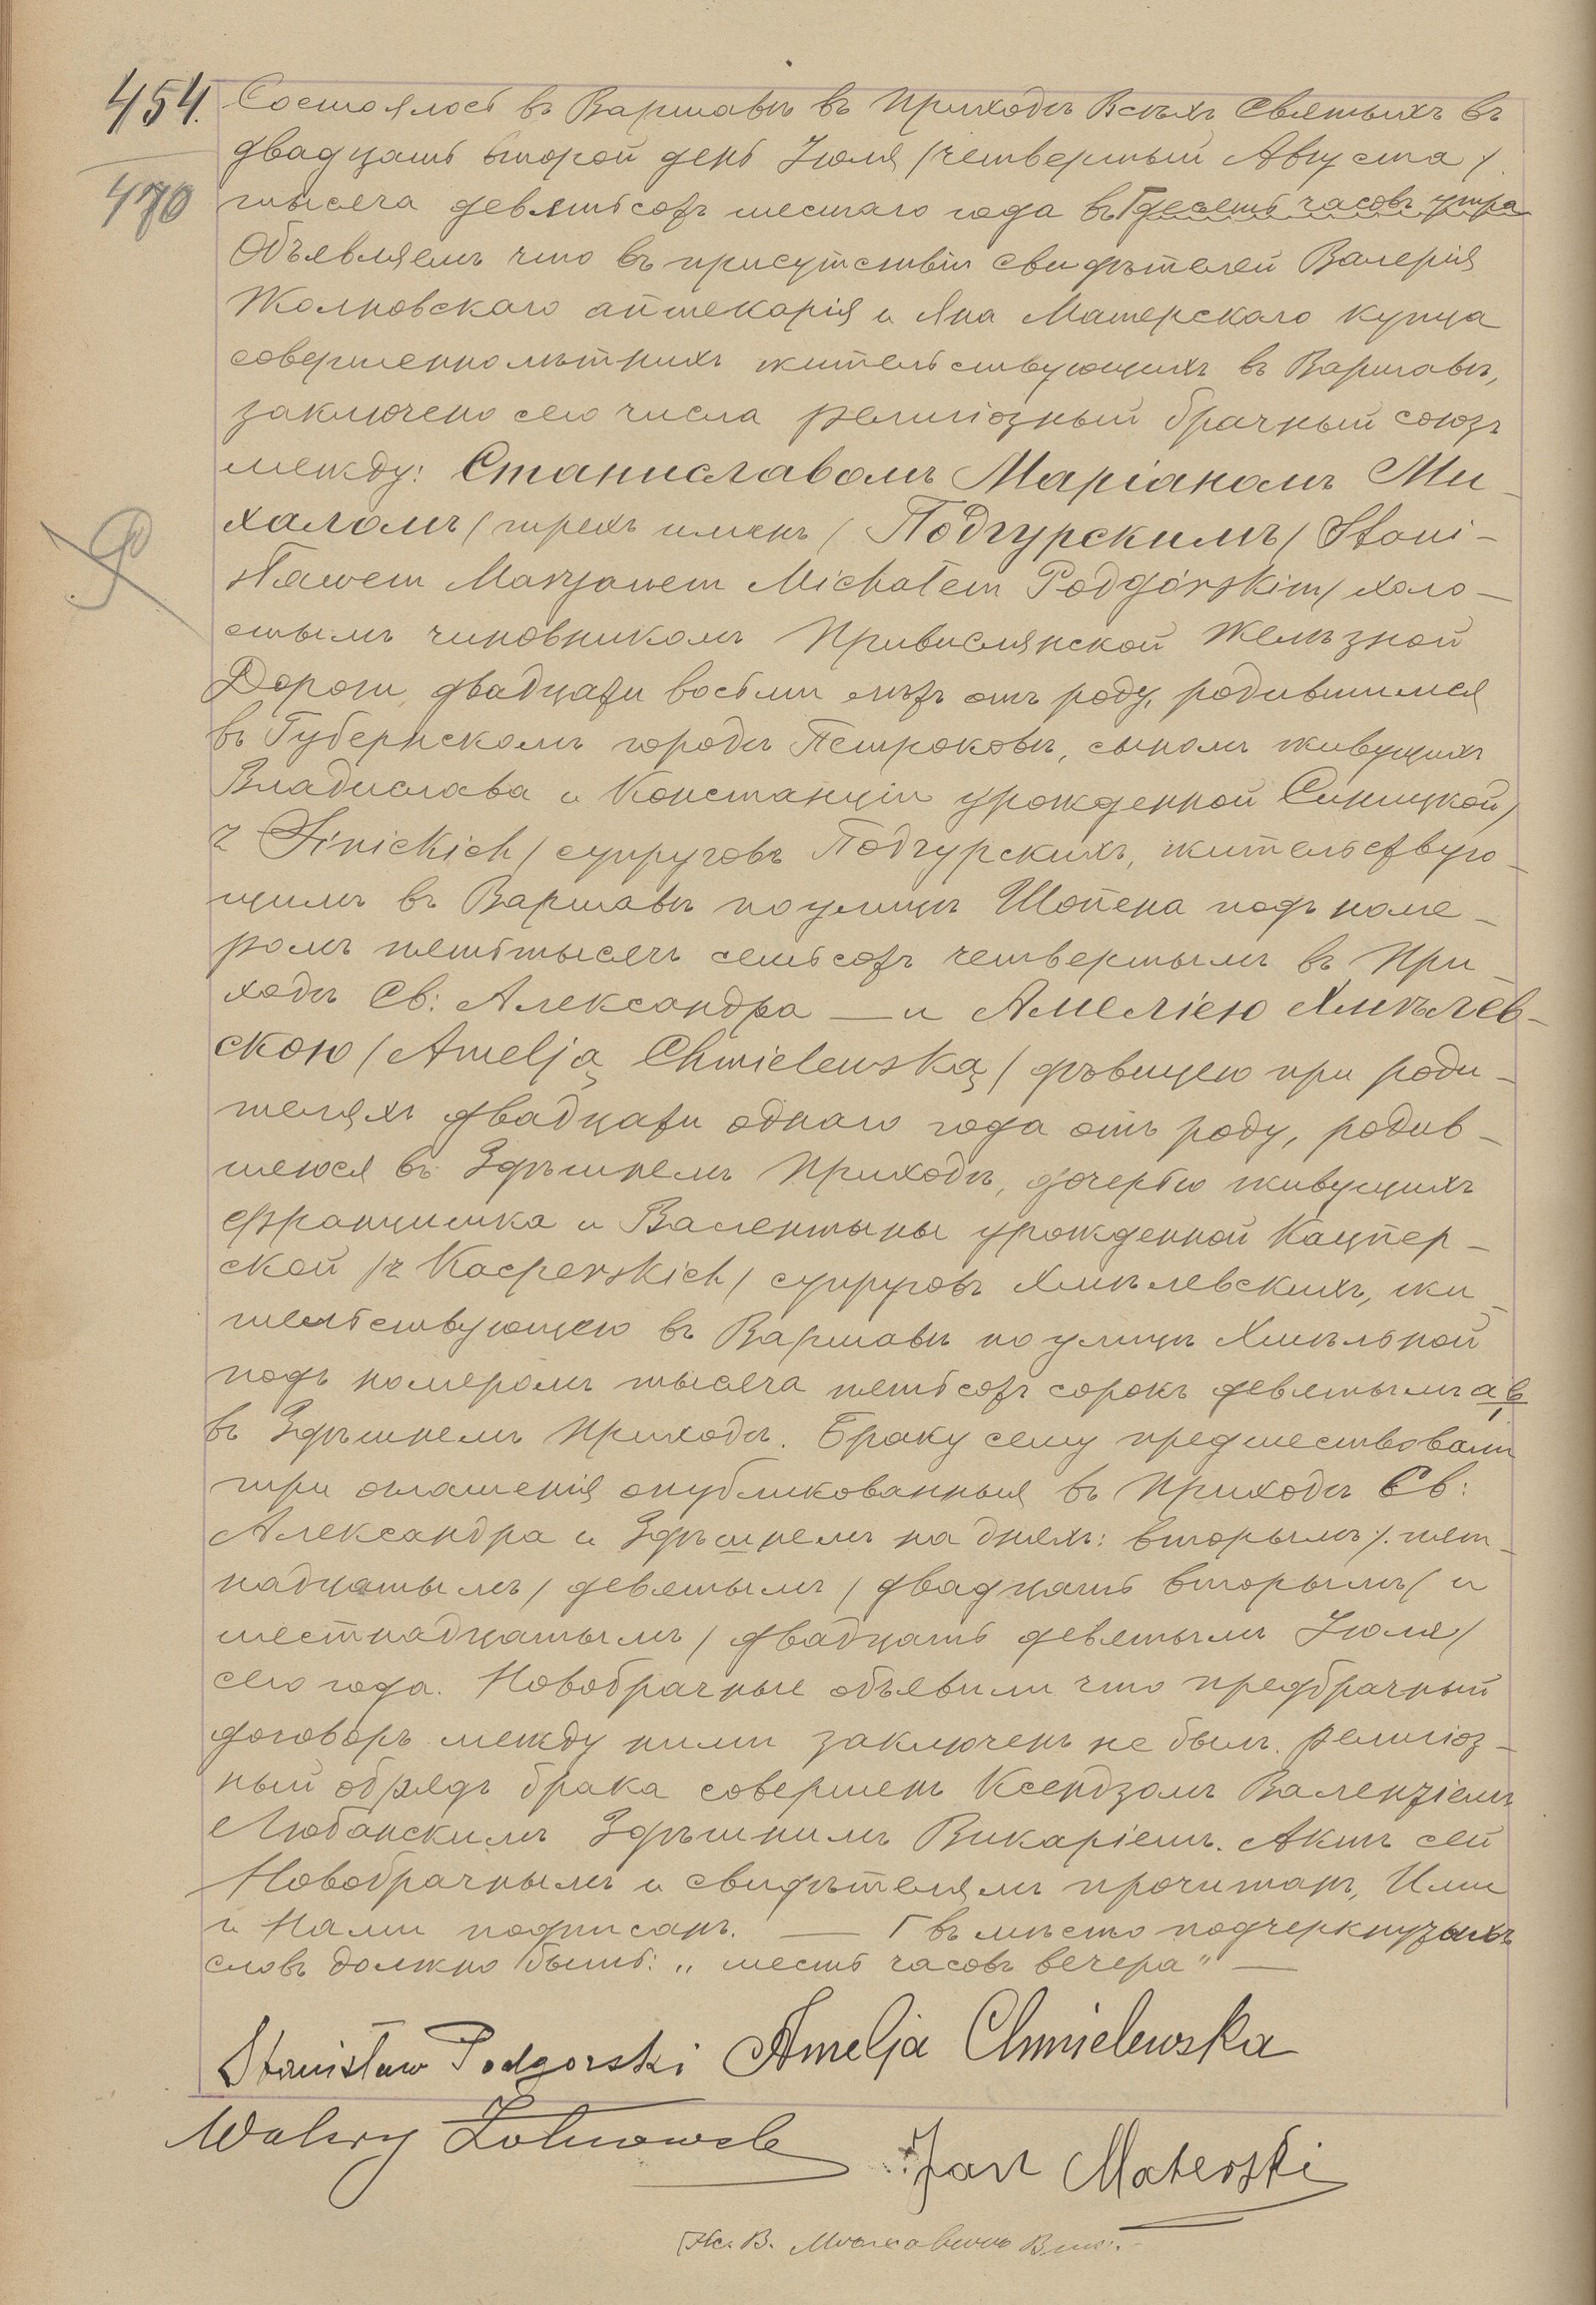 454.
470
Состоялось въ Варшавѣ въ приходѣ Всѣхъ Святыхъ въ
двадцать второй день Іюля /четвертый Августа/
тысяча девятьсотъ шестаго года въ Г десять часовъ утра
Объявляемъ что въ присутствіи свидѣтелей Валерія
Жолновскаго аптекарія и Яна Матерскаго купца
совершеннолѣтнихъ жительствующихъ въ Варшавѣ,
заключено сего числа религіозный брачный союзъ
между: Станиславомъ Маріаномъ Ми-
халомъ /трехъ именъ/ Подгурскимъ /Stani-
sławem Maryanem Michałem Podgórskim/ холо-
стымъ чиновникомъ Привислянской Желѣзной
Дороги, двадцати восьми лѣтъ отъ роду, родившимся
въ Губернскомъ городѣ Петроковѣ, сыномъ живущихъ
Владислава и Констанціи урожденной Синицкой/
z Sinickich/ супруговъ Подгурскихъ, жительствую-
щимъ въ Варшавѣ по улицѣ Шопена подъ номе-
ромъ пятьтысячъ семьсотъ четвертымъ въ При-
ходѣ Св: Александра — и Амеліею Хмѣлев-
скою /Amelją Chmielewską/ дѣвицею при роди-
теляхъ двадцати одного года отъ роду, родив-
шеюся въ Здѣшнемъ Приходѣ, дочерью живущихъ
Францишка и Валентыны урожденной Кацпер-
ской /z Kacperskich/ супруговъ Хмѣлевскихъ, жи-
тельствующею въ Варшавѣ по улицѣ Хмѣльной
подъ номеромъ тысяча пятьсотъ сорокъ девятымъ а, в
въ Здѣшнемъ Приходѣ. Браку сему предшествовали
три оглашенія опубликованныя въ Приходѣ Св:
Александра и Здѣшнемъ на дняхъ: вторымъ /.пят-
надцатымъ/ девятымъ /двадцать вторымъ/ и
шестнадцатымъ /двадцать девятымъ Іюля/
сего года. Новобрачные объявили что предбрачный
договоръ между ними заключенъ не былъ. Религіоз-
ный обрядъ брака совершенъ Ксендзомъ Валентіемъ
Любанскимъ Здѣшнимъ Викаріемъ. Актъ сей
Новобрачнымъ и свидѣтелямъ прочитанъ, Ими
и Нами подписанъ. — Г въ мѣсто подчеркнутыхъ
словъ должно быть: „шесть часовъ вечера” —
Stanisław Podgorski Amelja Chmielewska
Walery Żołnowski
Jan Materski
Кс. В.